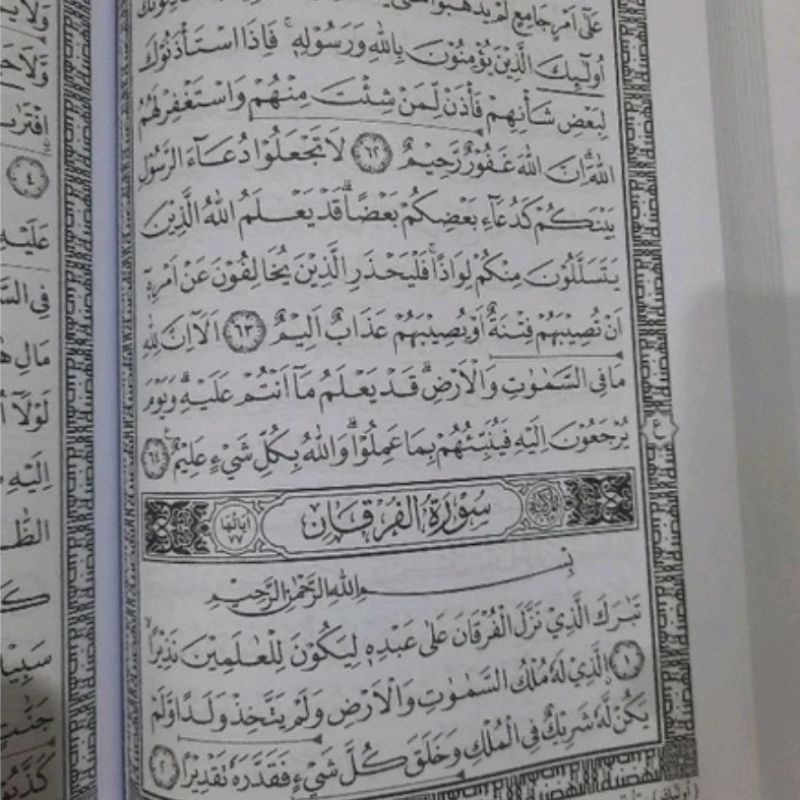 عَلٰٓى اَمْرٍ جَامِعٍ لَّمْ يَذْهَبُوْا
اُولٰٓئِكَ الَّذِيْنَ يُؤْمِنُوْنَ بِاللّٰهِ وَرَسُوْلِهٖ ۚ فَاِذَا اسْتَأْذَنُوْكَ
لِبَعْضِ شَأْنِهِمْ فَأْذَنْ لِّمَنْ شِئْتَ مِنْهُمْ وَاسْتَغْفِرْ لَهُمُ
اللّٰهَ ۗ اِنَّ اللّٰهَ غَفُوْرٌ رَّحِيْمٌ ٦٢ لَا تَجْعَلُوْا دُعَآءَ الرَّسُوْلِ
بَيْنَكُمْ كَدُعَآءِ بَعْضِكُمْ بَعْضًا ۗ قَدْ يَعْلَمُ اللّٰهُ الَّذِيْنَ
يَتَسَلَّلُوْنَ مِنْكُمْ لِوَاذًا ۚ فَلْيَحْذَرِ الَّذِيْنَ يُخَالِفُوْنَ عَنْ اَمْرِهٖٓ
اَنْ تُصِيْبَهُمْ فِتْنَةٌ اَوْ يُصِيْبَهُمْ عَذَابٌ اَلِيْمٌ ٦٣ اَلَآ اِنَّ لِلّٰهِ
مَا فِى السَّمٰوٰتِ وَالْاَرْضِ ۗ قَدْ يَعْلَمُ مَآ اَنْتُمْ عَلَيْهِ ۗ وَيَوْمَ
يُرْجَعُوْنَ اِلَيْهِ فَيُنَبِّئُهُمْ بِمَا عَمِلُوْا ۗ وَاللّٰهُ بِكُلِّ شَيْءٍ عَلِيْمٌ ٦٤
مكية سُوْرَةُ الْفُرْقَانِ اٰيَاتُهَا ٧٧
بِسْمِ اللّٰهِ الرَّحْمٰنِ الرَّحِيْمِ
تَبٰرَكَ الَّذِيْ نَزَّلَ الْفُرْقَانَ عَلٰى عَبْدِهٖ لِيَكُوْنَ لِلْعٰلَمِيْنَ نَذِيْرًا ۙ
١ الَّذِيْ لَهٗ مُلْكُ السَّمٰوٰتِ وَالْاَرْضِ وَلَمْ يَتَّخِذْ وَلَدًا وَّلَمْ
يَكُنْ لَّهٗ شَرِيْكٌ فِى الْمُلْكِ وَخَلَقَ كُلَّ شَيْءٍ فَقَدَّرَهٗ تَقْدِيْرًا ٢
افْتَرٰ
٤
عَلَيْهِ
فِى السَّ
مَالِ هٰ
لَوْلَآ اُ
اِلَيْهِ
الظّٰ
سَبِيْلًا
جَنّٰتٍ
كَذَّبُوْ